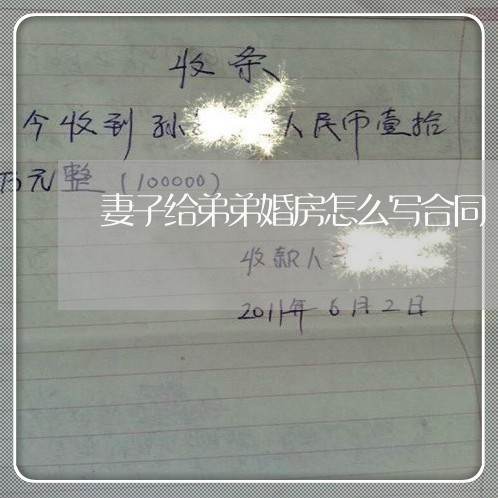 收条
今收到孙 人民币壹拾
万元整（100000）
妻子给弟弟婚房怎么写合同
收款人
2011年6月2日